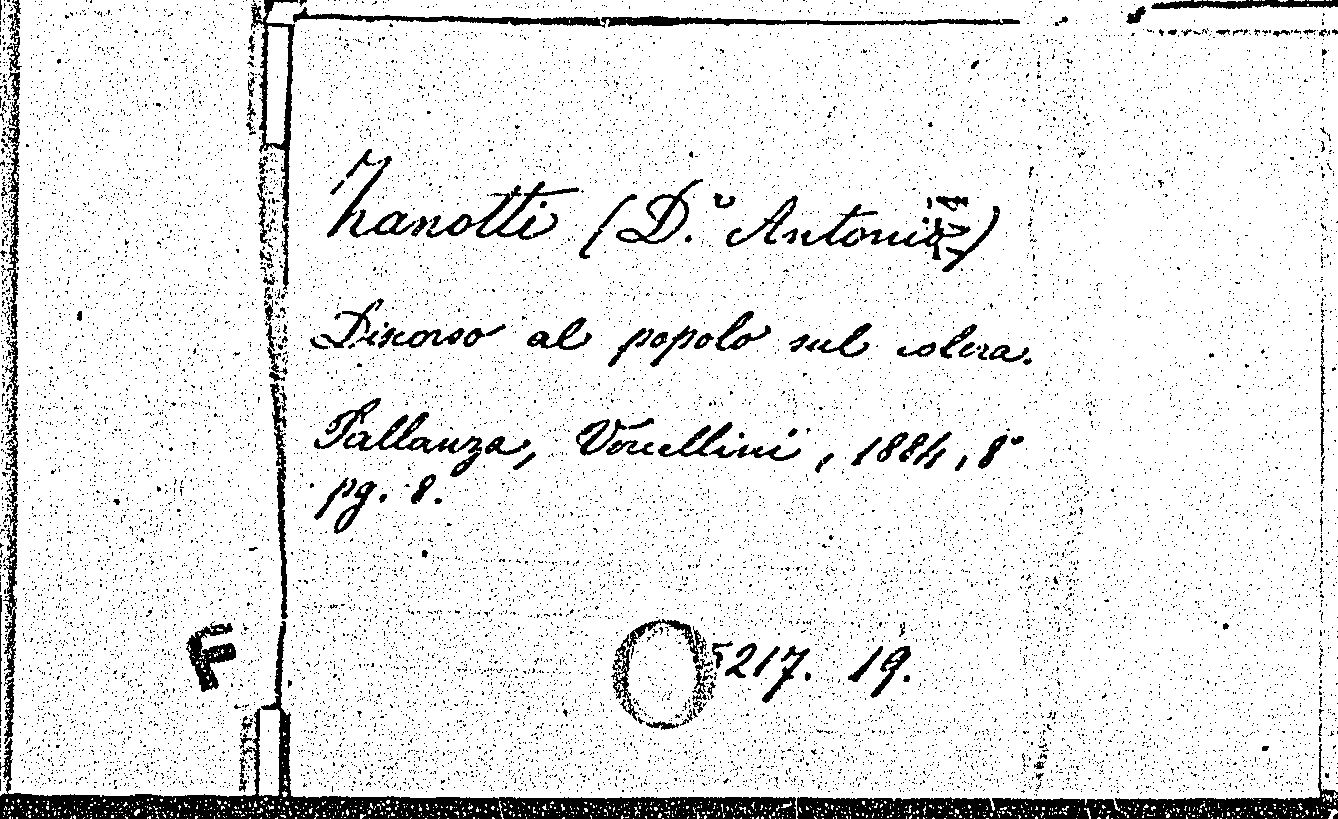 Zanotti (D.r Antonio)
Discorso al popolo sul colera.
Pallanza, Vercellini, 1884, 8°
pg. 8.
F
O 5217. 19.